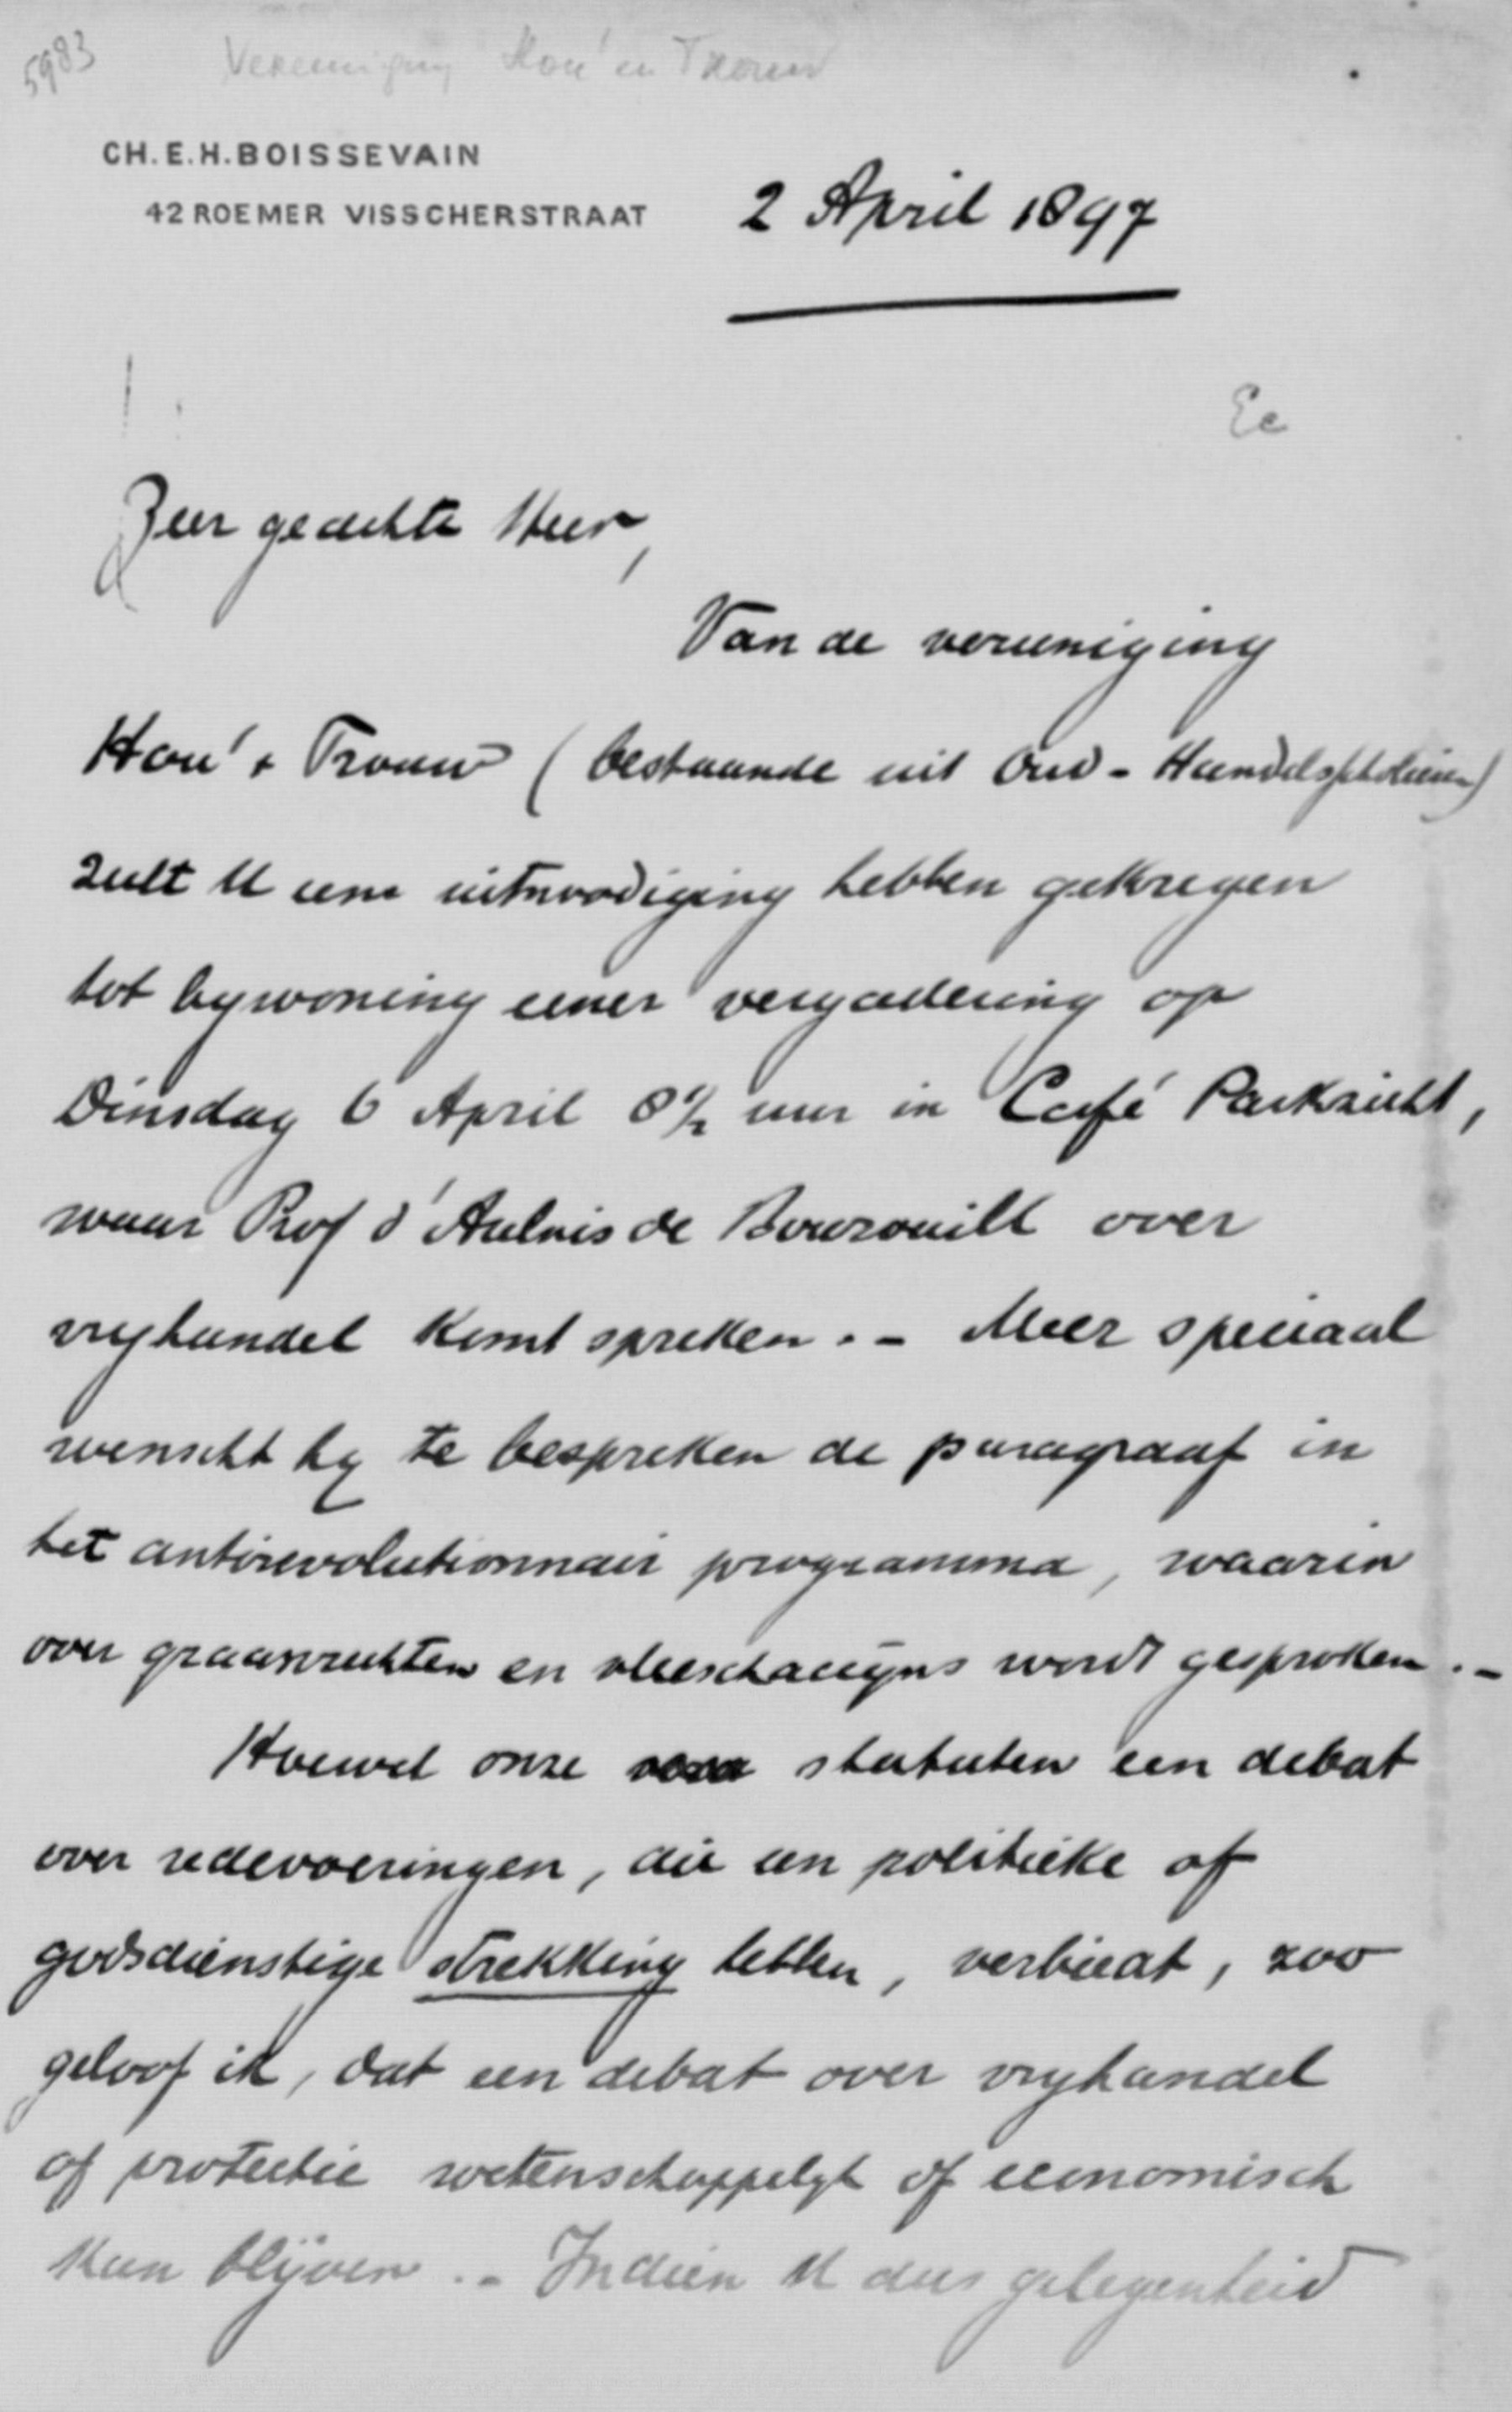 5983
Vereeniging Hou' en Trouw
CH. E. H. BOISSEVAIN
42 ROEMER VISSCHERSTRAAT
2 April 1897
Ee
Zeer geachte Heer,
Van de vereeniging
Hou' & Trouw (bestaande uit Oud-Handelsscholieren)
zult U eene uitnoodiging hebben gekregen
tot bywoning eener vergadering op
Dinsdag 6 April 8½ uur in Café Parkzicht,
waar Prof d'Aulnis de Bourouill over
vryhandel komt spreken. - Meer speciaal
wenscht hy te bespreken de paragraaf in
het antirevolutionnair programma, waarin
over graanrechten en vleeschaccijns wordt gesproken. -
Hoewel onze statuten een debat
over redevoeringen, die een politieke of
godsdienstige strekking hebben, verbiedt, zoo
geloof ik, dat een debat over vryhandel
of protectie wetenschappelyk of economisch
kan blijven. - Indien U dus gelegenheid